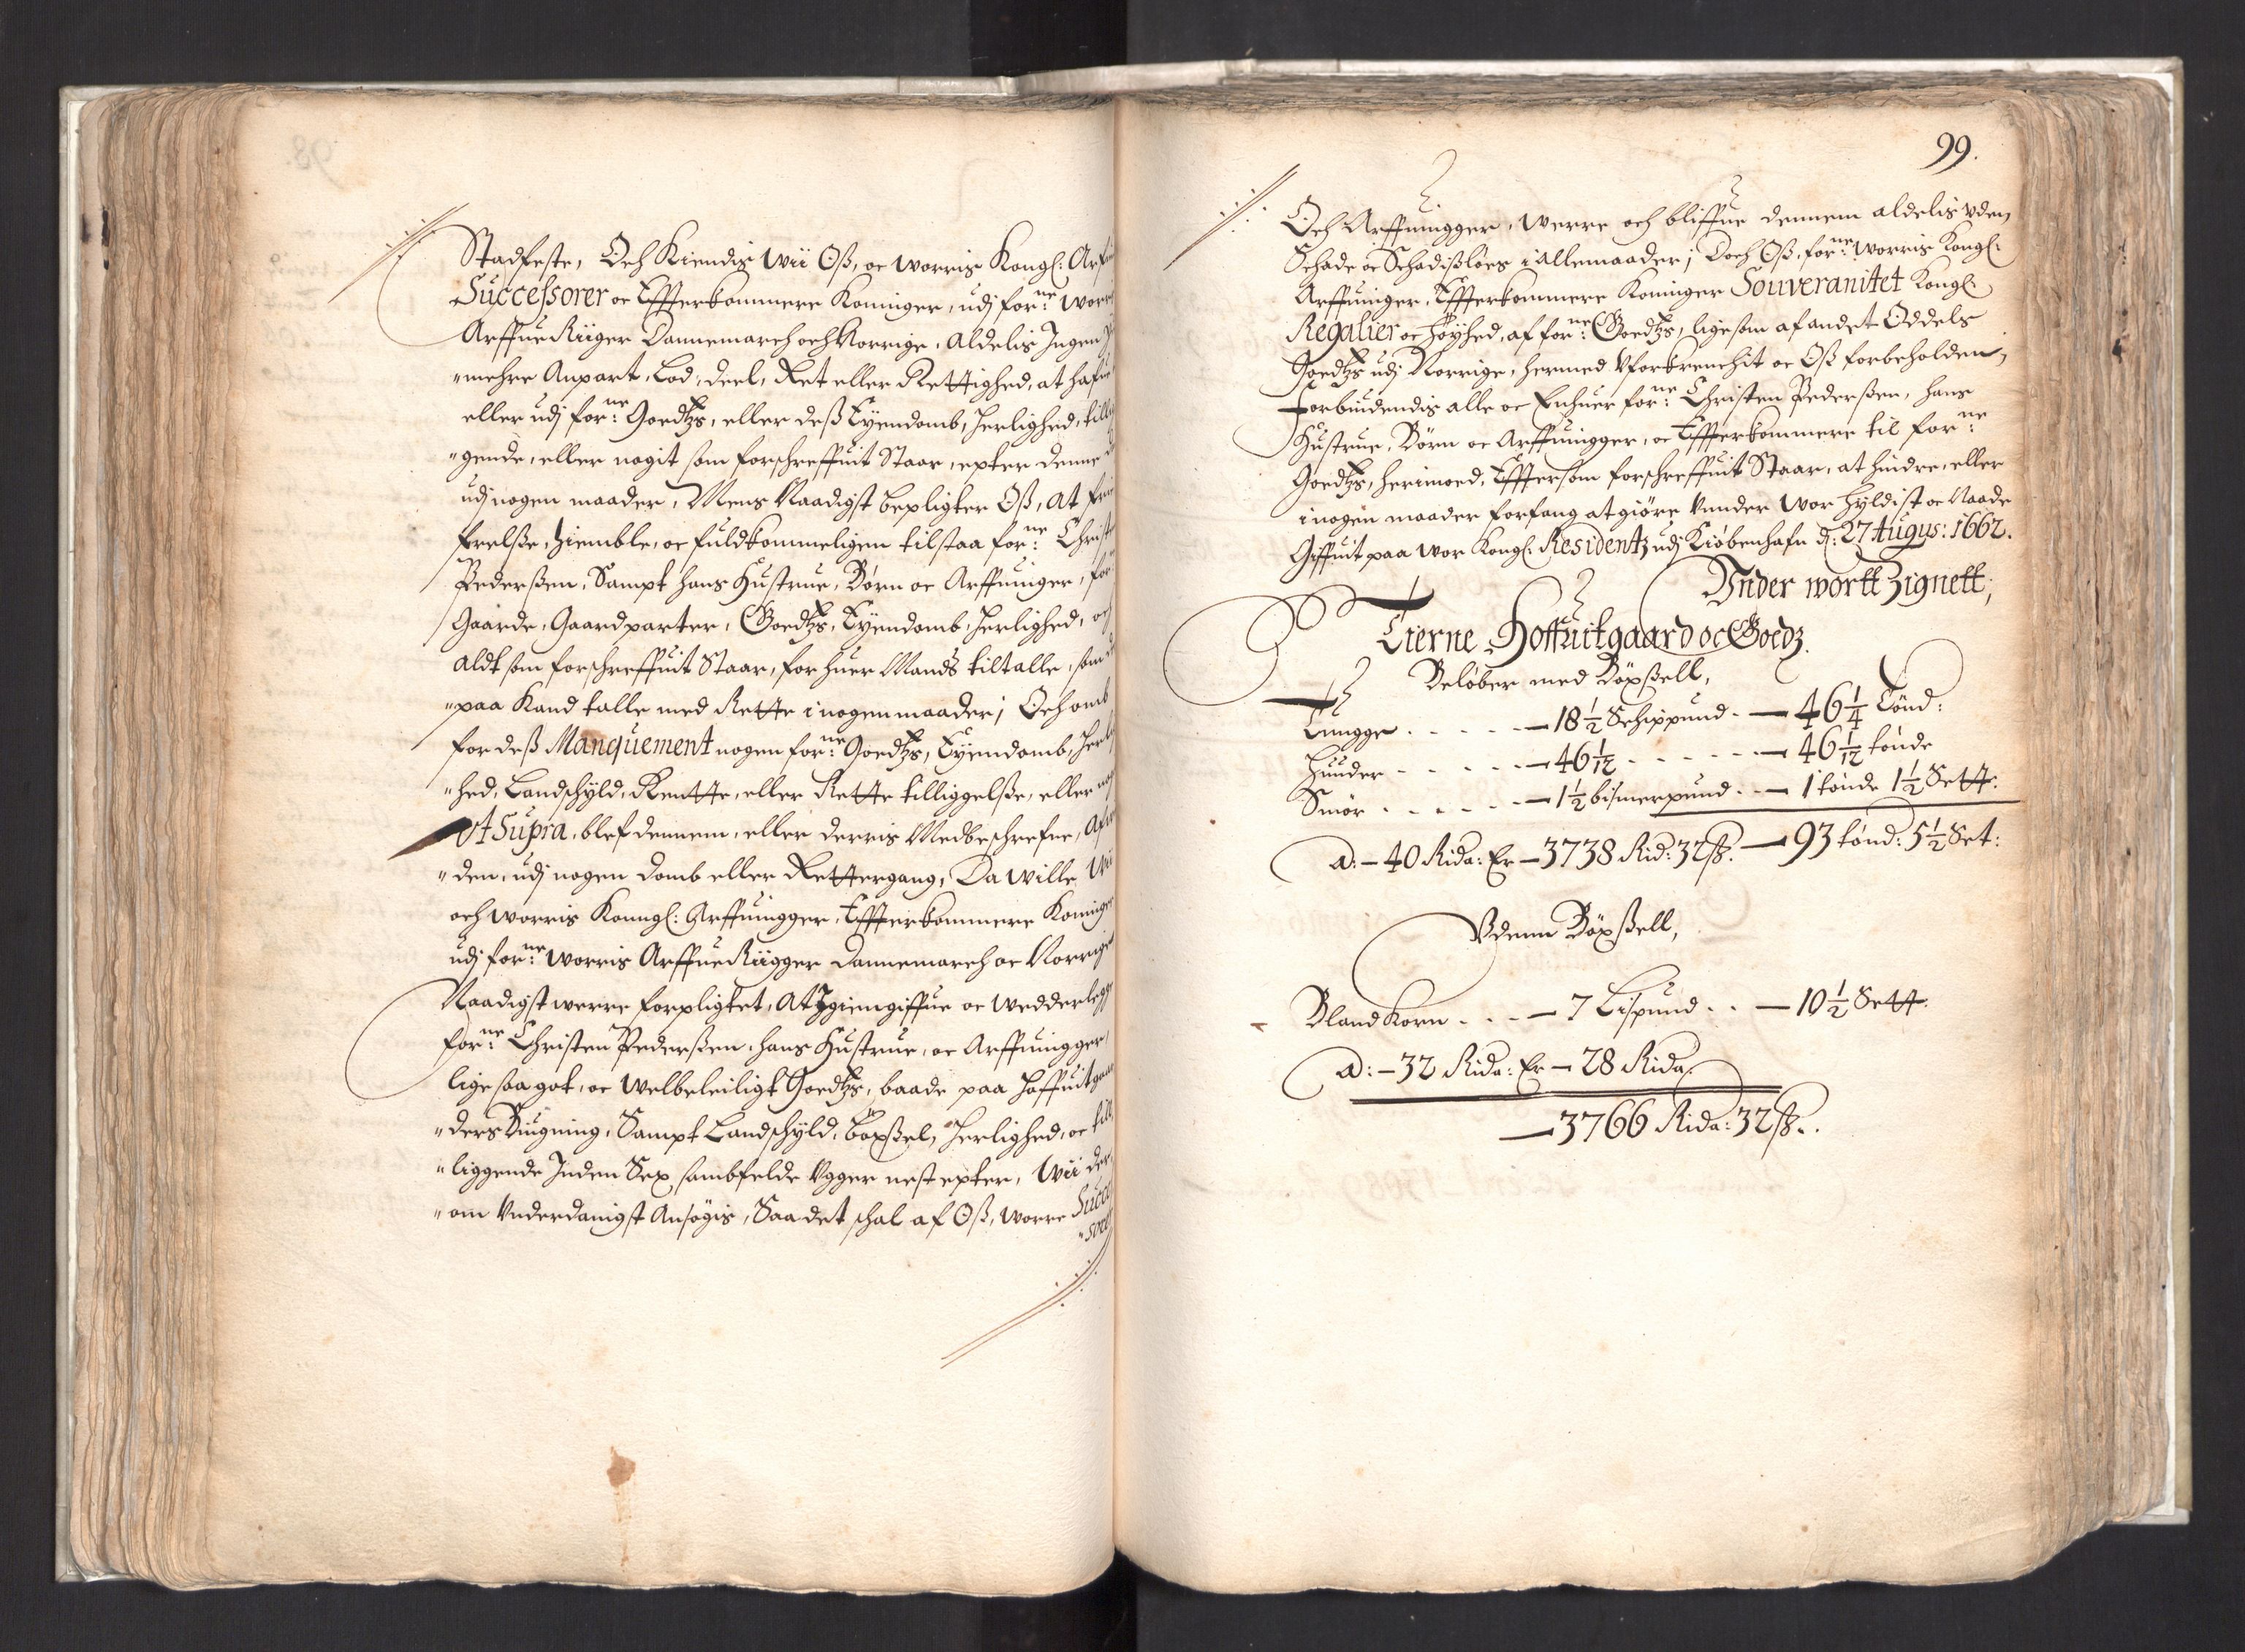 Stadfeste, Och Kiendis Wii Oß, oc Worris Kongl: Arfui
Successorer oc Effterkommere Koninger, udj forne: Worris
Arffue Riiger Dannemarch och Norrige, Aldelis Ingen
"mehre Anpart, Lod, deel, Ret eller Rettighed, at hafue
eller udj forne: Goedtzs, eller deß Eyendomb, Herlighed, tilli
"gende, eller nogit som forschreffuit Staar, epter denne
udj nogen maader, Mens Naadigst bepligter Oß, At frii
frelße, Hiemble, oc fuldkommeligen tilstaa forne: Christen
Pederßen, Sampt hans Hustrue, Børn oc Arffuinger, for
Gaarde, Gaardparter, Goedtzs, Eyendomb, Herlighed, och
aldt som forschreffuit Staar, for huer Mands tiltalle, som
"paa Kand talle med Rette i nogen maader; Och omb
for deß Manquement nogen forne: Goedtzs, Eyendomb, Herlig
"hed, Landschyld, Rentte, eller Rette tilliggelße, eller
Vt Supra, blef dennem, eller derris Medbeschrefne, Afun
"den, udj nogen domb eller Rettergang, Da Wille Wii
och Worris Konngl: Arffuingger, Effterkommere Koninger
udj forne: Worris Arffue Riigger Dannemarch oc Norrige
Naadigst werre forpligtet, At Igiengiffue oc Wedderlegge
forne: Christen Pederßen, hans Hustrue, oc Arffuingger,
lige saa got, oc Welbeleiligt Goedtzs, baade paa Hoffuitgaar
"ders Biugning, Sampt Landschyld, Böxßel, Herlighed, oc till
"liggende Inden Sex sambfelde Vgger nest epter, Wii der
"om Vnderdanigst Ansøgis, Saa det schal af Oß, Worre Succes
"sorer
99.
Och Arffuingger, Werre och bliffue dennem aldelis uden
Schade oc Schadißløes i Allemaader; Doch Oß, forne: Worris Kongl:
Arffuinger, Effterkommere Koninger Souveranitet Kongl:
Regalier oc Høyhed, af forne: Goedtzs, lige som af andet Oddels
Goedtzs udj Norrige, hermed Vforkrenchit oc Oß forbeholden,
Forbiudendis alle oc Enhuer forne: Christen Pederßen, hans
Hustrue, Børn oc Arffuingger, oc Effterkommere til forne:
Goedtzs, herimod, Efftersom forschreffuit Staar, at hindre, eller
i nogen maader forfang at giöre Vnder Wor Hyldist oc Naade
Giffuit paa Wor Kongl: Residentz udj Kiøbenhafn d: 27 Augus: 1662.
Vnder wortt Zignett,
Tierne Hoffuitgaard oc Goedz.
Beløber med Böxßell,
Tungge . . . . . — 18 1/2 Schippund. — 46 1/4 Tönd:
Huuder . . . . . — 46 1/12 . . . . . — 46 1/12 tönde
Smör . . . . . — 1 1/2 bismerpund . . — 1 tönde 1 1/2 Sett:
a: — 40 Rida: Er — 3738 Rid: 32 ß. — 93 tönd: 5 1/2 Set:
Vdenn Böxßell,
Bland Korn . . . — 7 Lispund . . — 10 1/2 Sett:
a: — 32 Rida: Er — 28 Rida
— 3766 Rida: 32 ß. .